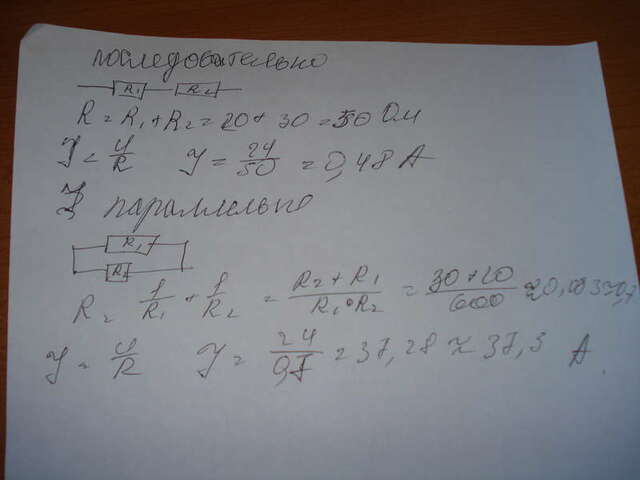 последовательно
R1 R2
R = R1 + R2 = 20 + 30 = 50 Ом
J = U/R J = 24/50 = 0,48 A
параллельно
R1
R = 1/R1 + 1/R2 = R2 + R1 / R1 • R2 = 30 + 20 / 600 ≈
J = U/R J = 24 / = 37,28 ≈ 37,3 A